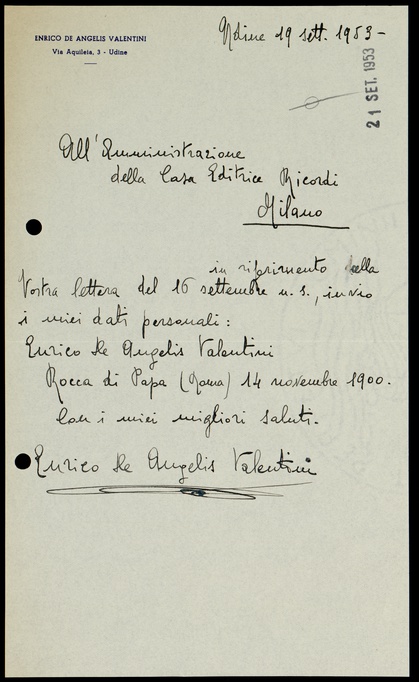 ENRICO DE ANGELIS VALENTINI
Via Aquileia, 3 - Udine
Udine 19 sett. 1953 -
21 SET. 1953
All'Amministrazione
della Casa Editrice Ricordi
Milano
in riferimento alla
Vostra lettera del 16 settembre u. s., invio
i miei dati personali:
Enrico De Angelis Valentini
Rocca di Papa (Roma) 14 novembre 1900.
Con i miei migliori saluti.
Enrico De Angelis Valentini